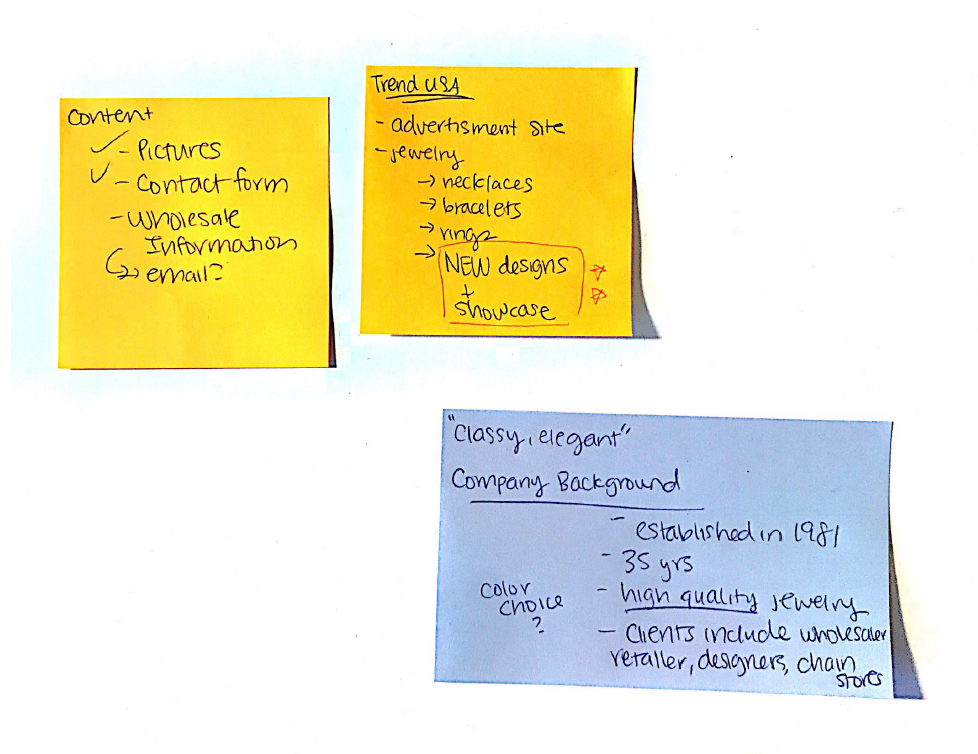 Content
✓ - Pictures
✓ - Contact form
- Wholesale
Information
↳ email?
Trend USA
- advertisment site
- jewelry
→ necklaces
→ bracelets
→ rings
→ NEW designs
+
showcase
"Classy, elegant"
Company Background
- established in 1981
- 35 yrs
- high quality jewelry
- Clients include wholesaler
retailer, designers, chain
stores
color
choice
?